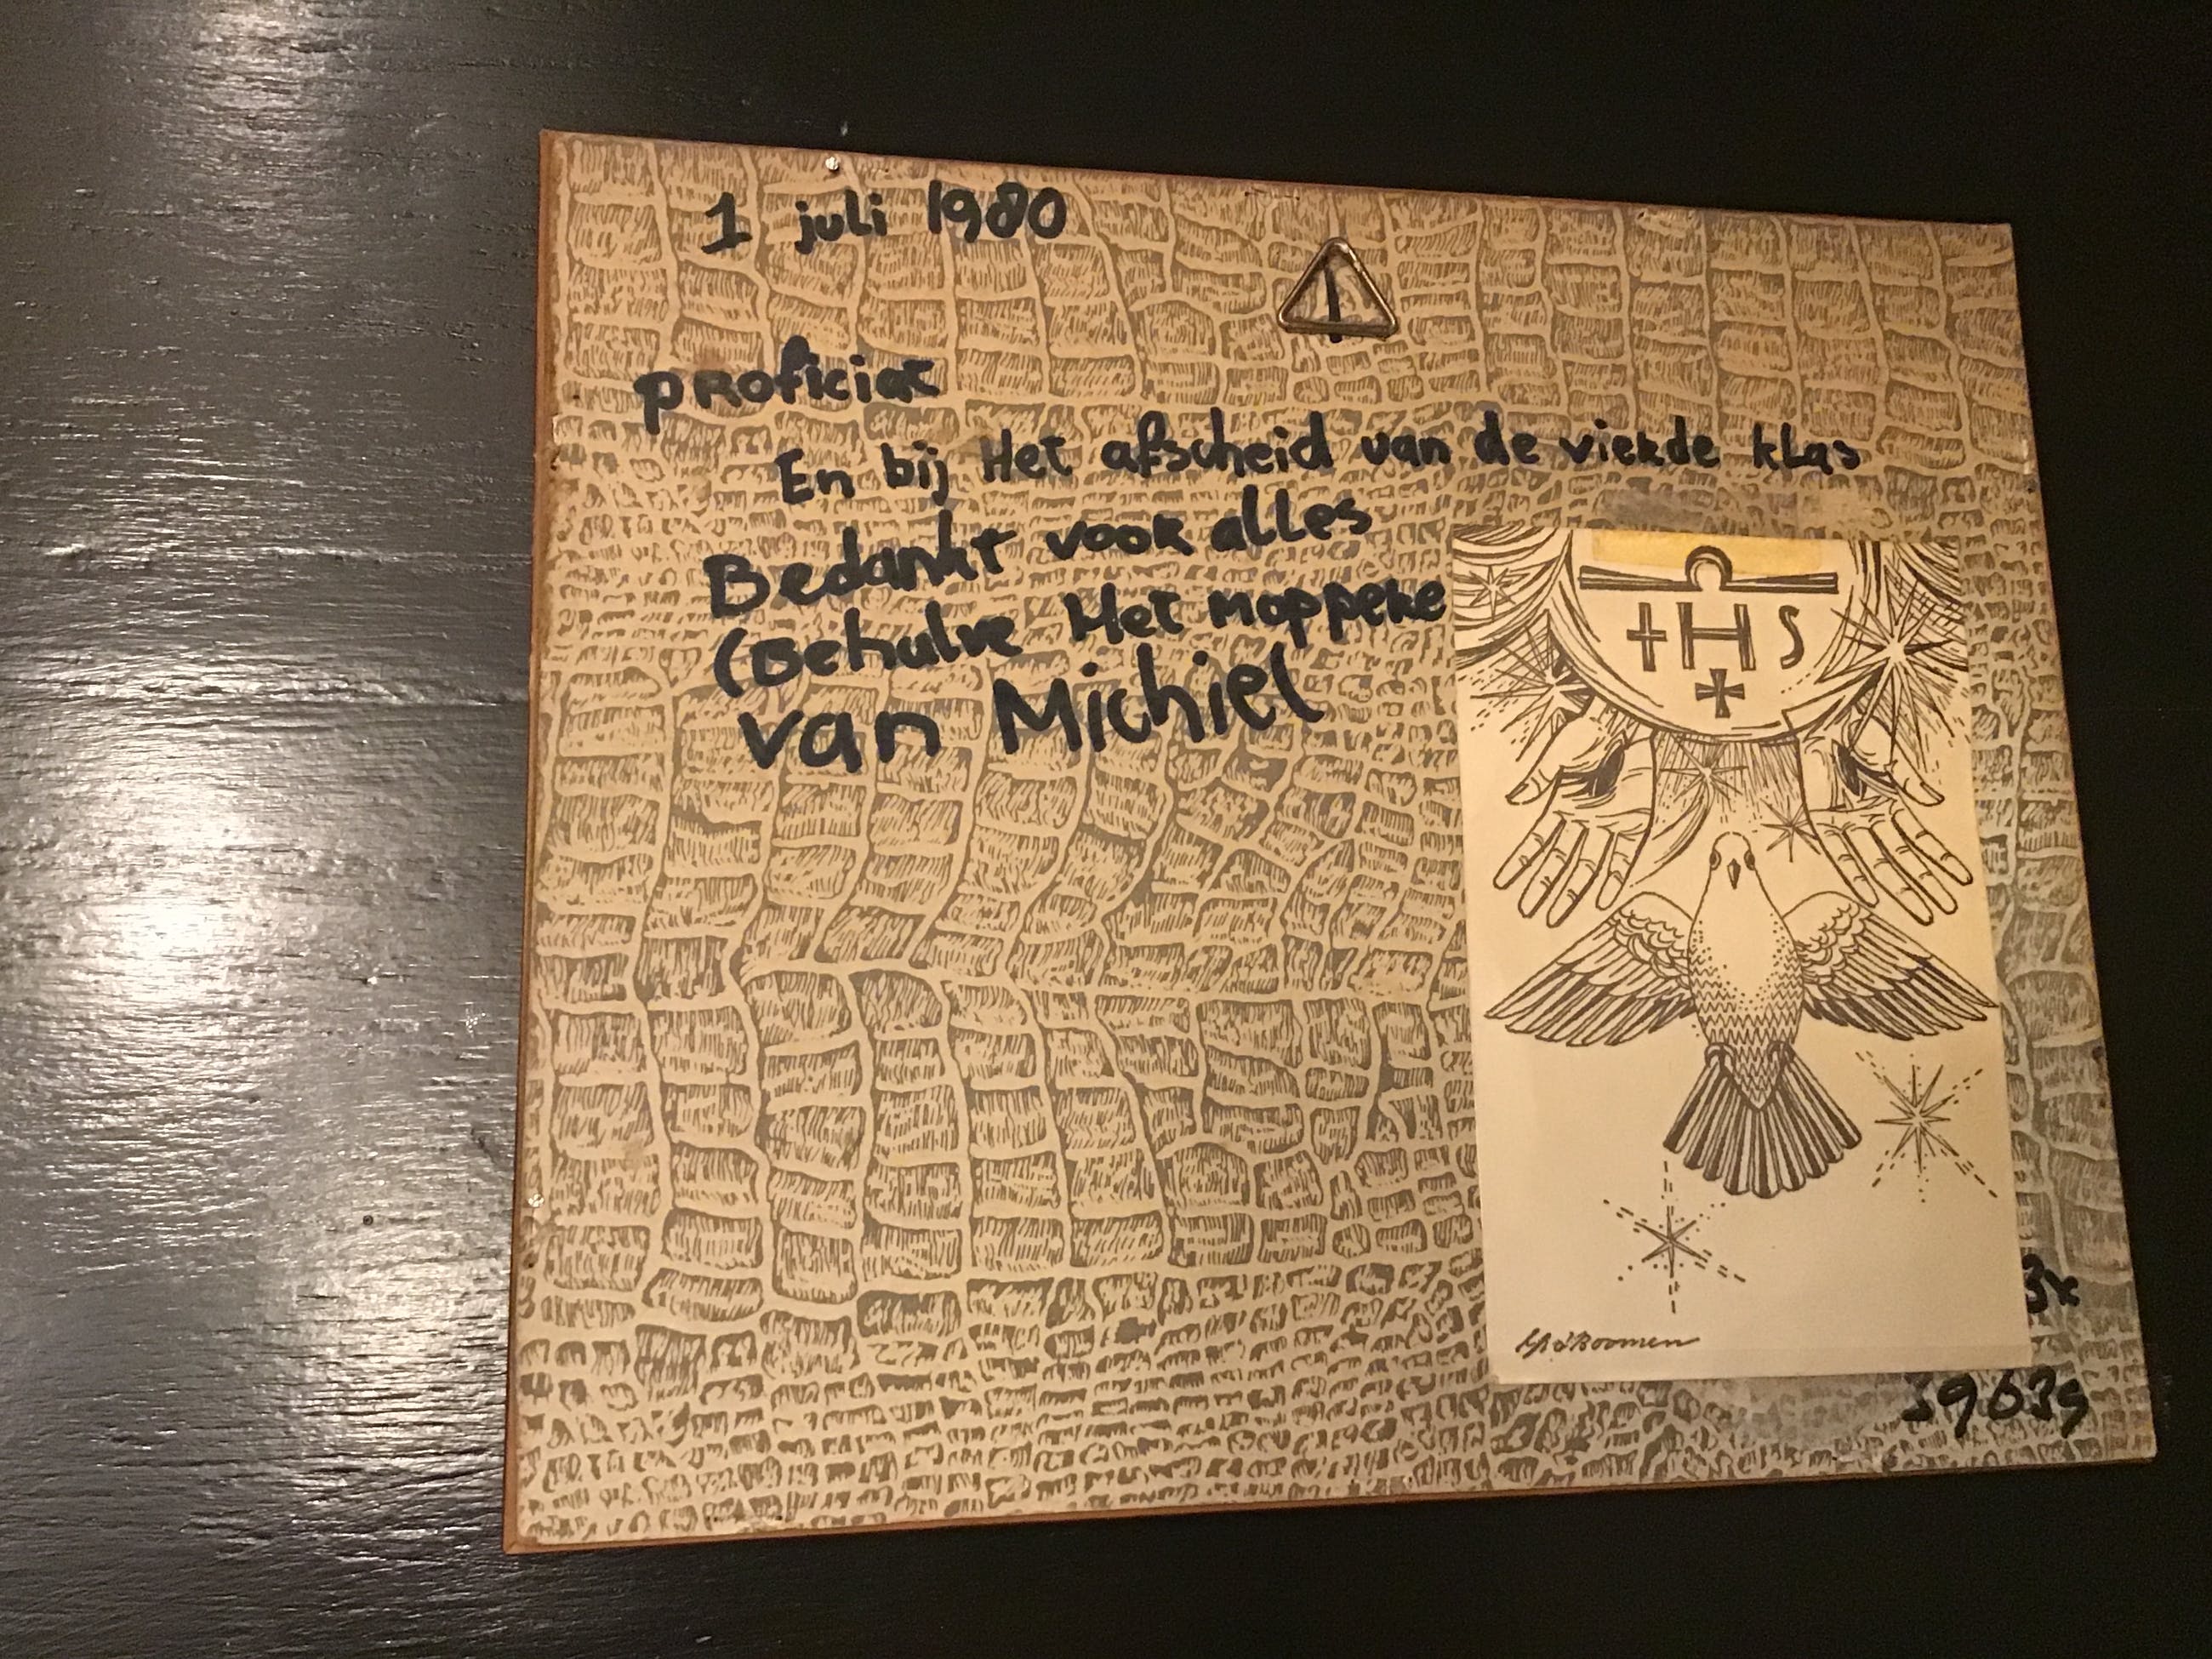 1 juli 1980
proficiat
En bij Het afscheid van de vierde klas
Bedankt voor alles
(Behulve Het moppeke
van Michiel
IHS
3x
39639